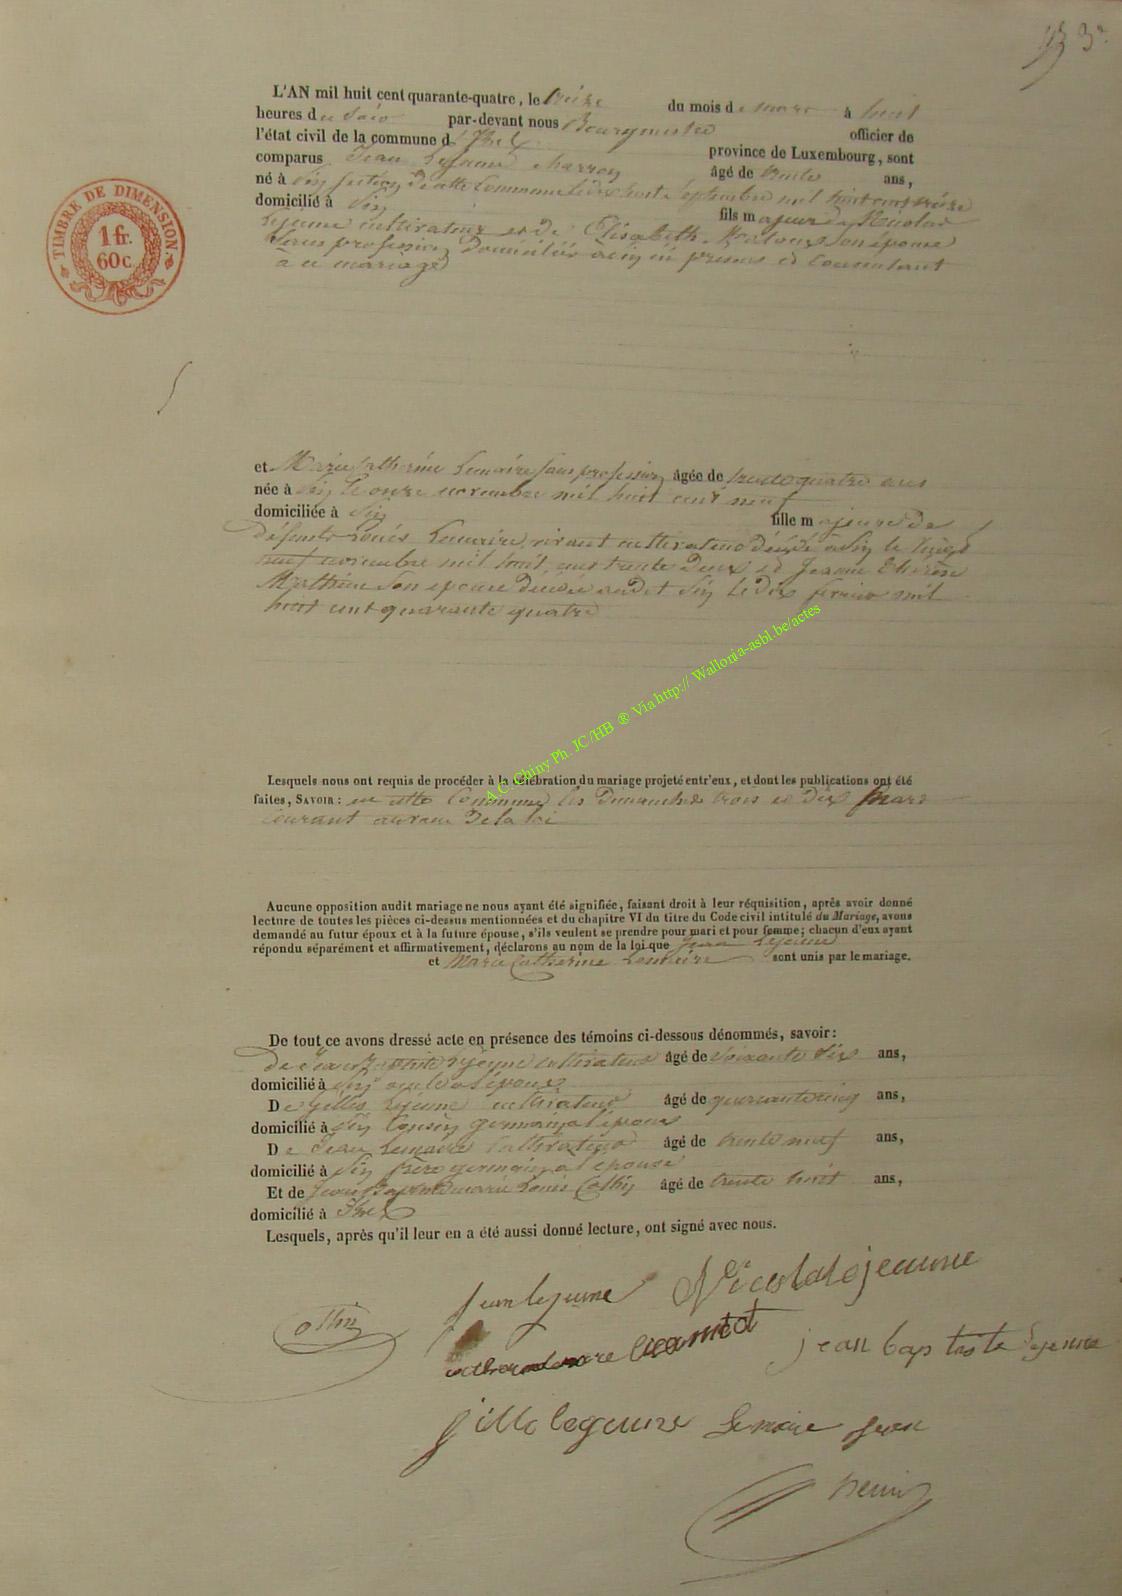 93 3º
L'AN mil huit cent quarante-quatre, le treize du mois de mars à huit
heures du soir par-devant nous Bourgmestre officier de
l'état civil de la commune d'Izel province de Luxembourg, sont
comparus Jean Lejeune charron âgé de trente ans,
né à section de cette commune le septembre mil huit cent treize
domicilié à fils majeur de Nicolas
Lejeune cultivateur et de Elisabeth son épouse
sans profession domiciliés présens et consentant
à ce mariage
TIMBRE DE DIMENSION
1 fr.
60 c.
et Marie Catherine Lemaire sans profession âgée de trente quatre ans
née à le onze novembre mil huit cent neuf
domiciliée à fille majeure de
défunts Louis Lemaire vivant cultivateur décédé à le
neuf novembre mil huit cent trente deux et Jeanne Thérèse
Mathieu son épouse décédée audit le dix février mil
huit cent quarante quatre
A.C. Chiny Ph. JC/HB ® Via http:// Walloria-asbl.be/actes
Lesquels nous ont requis de procéder à la célébration du mariage projeté entr'eux, et dont les publications ont été
faites, SAVOIR : en cette commune les Dimanches trois et dix mars
courant au vœu de la loi
Aucune opposition audit mariage ne nous ayant été signifiée, faisant droit à leur réquisition, après avoir donné
lecture de toutes les pièces ci-dessus mentionnées et du chapitre VI du titre du Code civil intitulé du Mariage, avons
demandé au futur époux et à la future épouse, s'ils veulent se prendre pour mari et pour femme; chacun d'eux ayant
répondu séparément et affirmativement, déclarons au nom de la loi que Jean Lejeune
et Marie Catherine Lemaire sont unis par le mariage.
De tout ce avons dressé acte en présence des témoins ci-dessous dénommés, savoir :
De Jean Lejeune cultivateur âgé de soixante six ans,
domicilié à oncle à l'époux
De Gilles Lejeune cultivateur âgé de quarante cinq ans,
domicilié à cousin germain à l'époux
De Jean Lemaire cultivateur âgé de trente neuf ans,
domicilié à frère germain à l'épouse
Et de Jean Marie Louis âgé de trente huit ans,
domicilié à Izel
Lesquels, après qu'il leur en a été aussi donné lecture, ont signé avec nous.
jean lejeune Nicolas lejeunne
jean baptiste lejeune
gille legeune Lemaire jean
henin